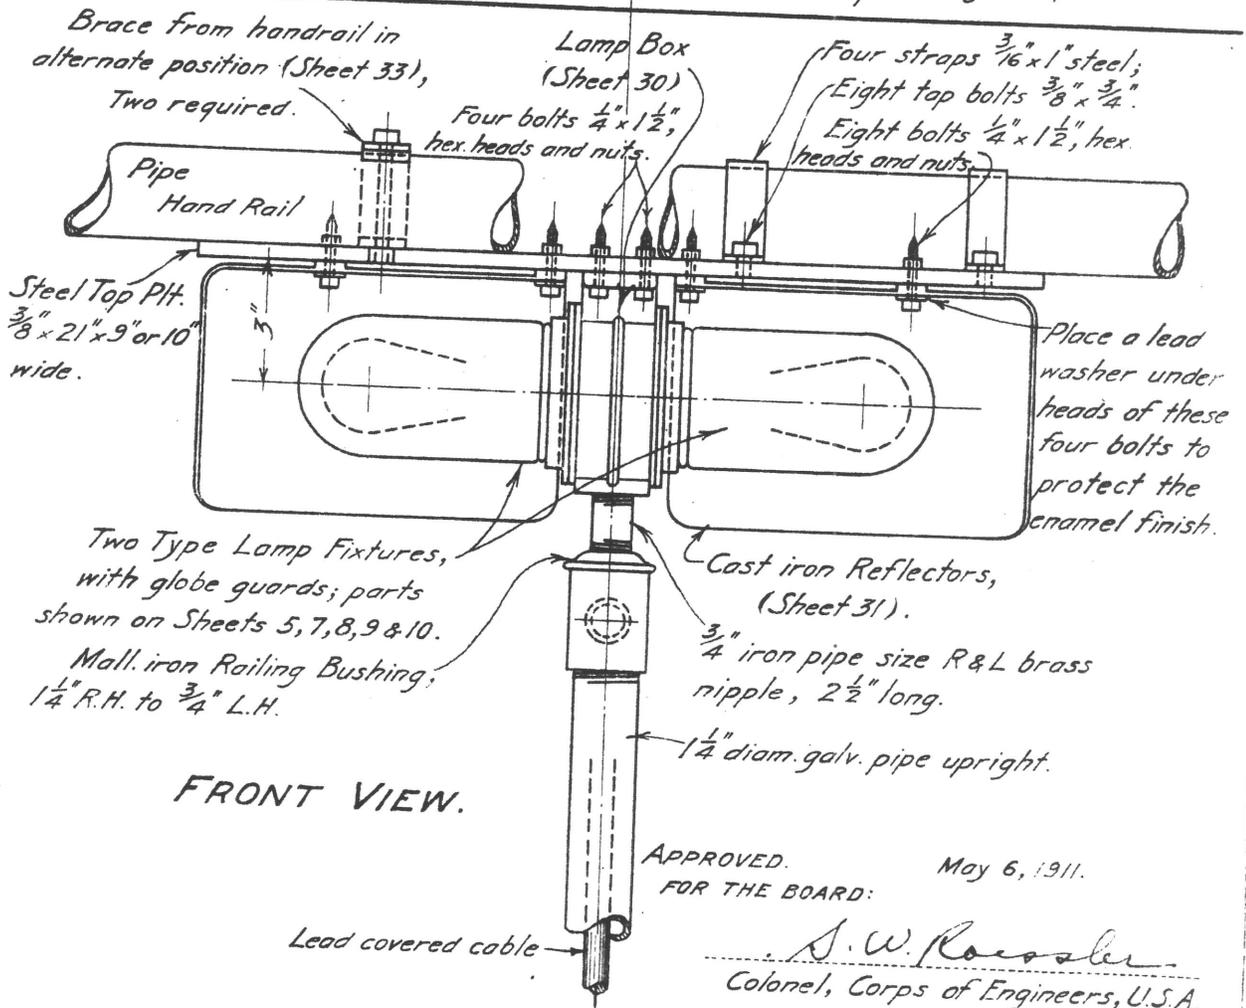 Brace from handrail in
alternate position (Sheet 33),
Two required.
Lamp Box
(Sheet 30)
Four bolts 1/4" x 1 1/2",
hex. heads and nuts.
Four straps 3/16" x 1" steel;
Eight tap bolts 3/8" x 3/4".
Eight bolts 1/4" x 1 1/2", hex.
heads and nuts.
Pipe
Hand Rail
Steel Top Plt.
3/8" x 21" x 9" or 10"
wide.
3"
Place a lead
washer under
heads of these
four bolts to
protect the
enamel finish.
Two Type Lamp Fixtures,
with globe guards; parts
shown on Sheets 5, 7, 8, 9 & 10.
Mall. iron Railing Bushing;
1 1/4" R.H. to 3/4" L.H.
Cast iron Reflectors,
(Sheet 31).
3/4" iron pipe size R & L brass
nipple, 2 1/2" long.
1 1/4" diam. galv. pipe upright.
FRONT VIEW.
APPROVED.
FOR THE BOARD:
May 6, 1911.
Lead covered cable
S. W. Roessler
Colonel, Corps of Engineers, U.S.A